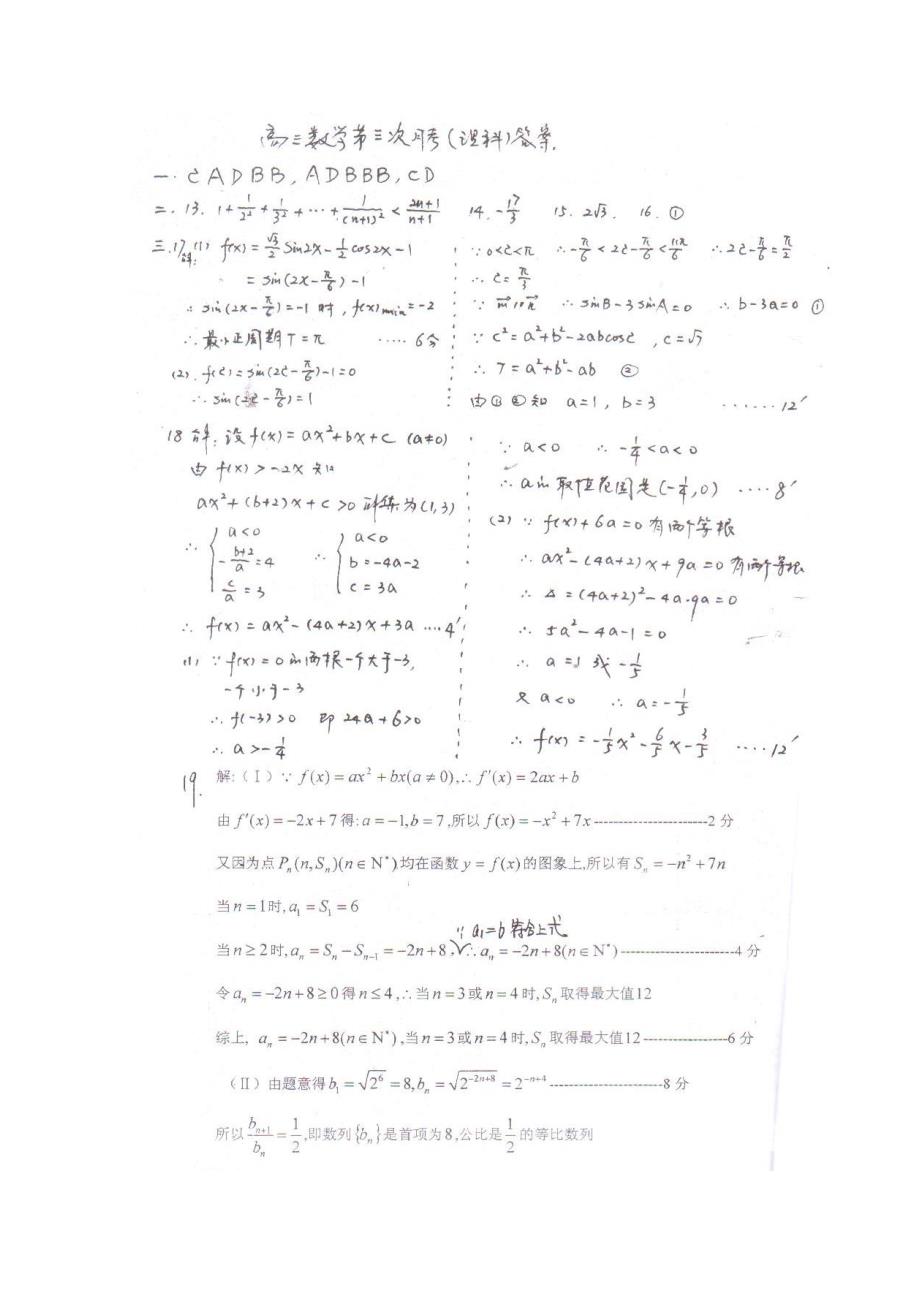 高三数学第三次月考(理科)答案.
一. CADBB, ADBBB, CD
二. 13. 1+1/2²+1/3²+…+1/(n+1)²<(2n+1)/(n+1) 14. -17/3 15. 2√3. 16. ①
三.17.(1)解: f(x)=√3/2 sin2x-1/2 cos2x-1
=sin(2x-π/6)-1
∴sin(2x-π/6)=-1时, f(x)min=-2
∴最小正周期T=π ……6分
(2). f(c)=sin(2c-π/6)-1=0
∴sin(2c-π/6)=1
∵0<c<π ∴-π/6<2c-π/6<11π/6 ∴2c-π/6=π/2
∴c=π/3
∵m⃗∥n⃗ ∴sinB-3sinA=0 ∴b-3a=0 ①
∵c²=a²+b²-2abcosc, c=√7
∴7=a²+b²-ab ②
由①②知 a=1, b=3 ……12′
18解:设f(x)=ax²+bx+c (a≠0)
由f(x)>-2x知
ax²+(b+2)x+c>0解集为(1,3)
∴{a<0 -(b+2)/a=4 c/a=3 ∴{a<0 b=-4a-2 c=3a
∴f(x)=ax²-(4a+2)x+3a …4′
(1)∵f(x)=0的两根一个大于-3,
一个小于-3
∴f(-3)>0 即24a+6>0
∴a>-1/4
∵a<0 ∴-1/4<a<0
∴a的取值范围是(-1/4,0) ……8′
(2)∵f(x)+6a=0有两个等根
∴ax²-(4a+2)x+9a=0有两个等根
∴Δ=(4a+2)²-4a·9a=0
∴5a²-4a-1=0
∴a=1或-1/5
又a<0 ∴a=-1/5
∴f(x)=-1/5x²-6/5x-3/5 ……12′
19. 解:(Ⅰ)∵f(x)=ax²+bx(a≠0),∴f′(x)=2ax+b
由f′(x)=-2x+7得:a=-1,b=7,所以f(x)=-x²+7x------------------------2分
又因为点Pₙ(n,Sₙ)(n∈N*)均在函数y=f(x)的图象上,所以有Sₙ=-n²+7n
当n=1时,a₁=S₁=6
∵a₁=6符合上式
当n≥2时,aₙ=Sₙ-Sₙ₋₁=-2n+8,∴aₙ=-2n+8(n∈N*)------------------------4分
令aₙ=-2n+8≥0得n≤4,∴当n=3或n=4时,Sₙ取得最大值12
综上, aₙ=-2n+8(n∈N*),当n=3或n=4时,Sₙ取得最大值12------------------6分
(Ⅱ)由题意得b₁=√2⁶=8,bₙ=√2⁻²ⁿ⁺⁸=2⁻ⁿ⁺⁴------------------------8分
所以bₙ₊₁/bₙ=1/2,即数列{bₙ}是首项为8,公比是1/2的等比数列